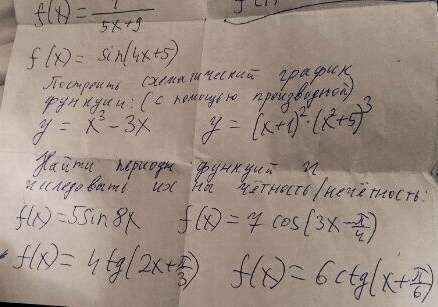 f(x) = 7/(5x+9)
f(x) = sin(4x+5)
Построить схематический график
функции: (с помощью производной)
y = x³ - 3x y = (x+1)²·(x²+5)³
Найти периоды функций и
исследовать их на чётность/нечётность:
f(x) = 5sin8x f(x) = 7 cos(3x - π/4)
f(x) = 4 tg(2x + π/3) f(x) = 6 ctg(x + π/6)